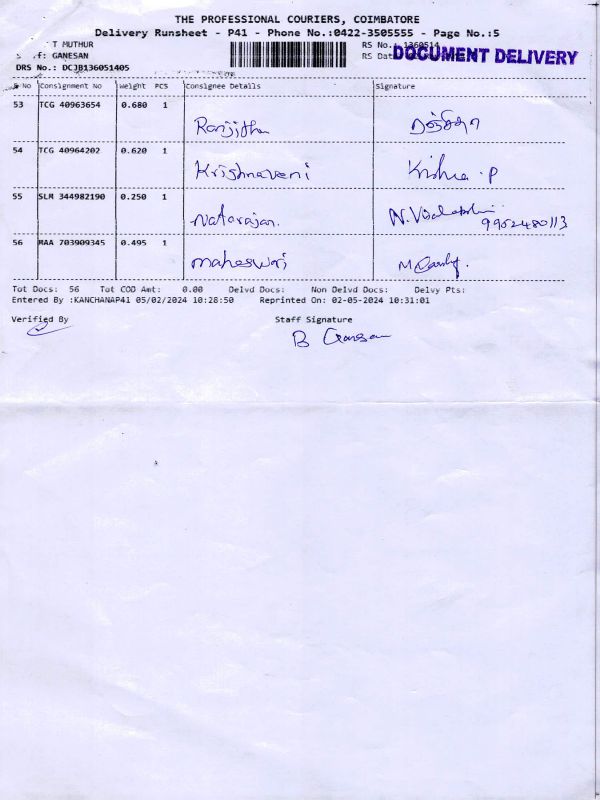 THE PROFESSIONAL COURIERS, COIMBATORE
Delivery Runsheet - P41 - Phone No.:0422-3505555 - Page No.:5
T MUTHUR RS No.: 1360514
f: GANESAN RS Dat DOCUMENT DELIVERY
DRS No.: DCJB136051405
S No Consignment No Weight PCS Consignee Details Signature
53 TCG 40963654 0.680 1
Ranjitha
54 TCG 40964202 0.620 1
Krishnaveni Krishna.P
55 SLM 344982190 0.250 1
Natarajan. N.Visalakshi
9952480113
56 MAA 703909345 0.495 1
maheswari
Tot Docs: 56 Tot COD Amt: 0.00 Delvd Docs: Non Delvd Docs: Delvy Pts:
Entered By :KANCHANAP41 05/02/2024 10:28:50 Reprinted On: 02-05-2024 10:31:01
Verified By Staff Signature
B Ganesan